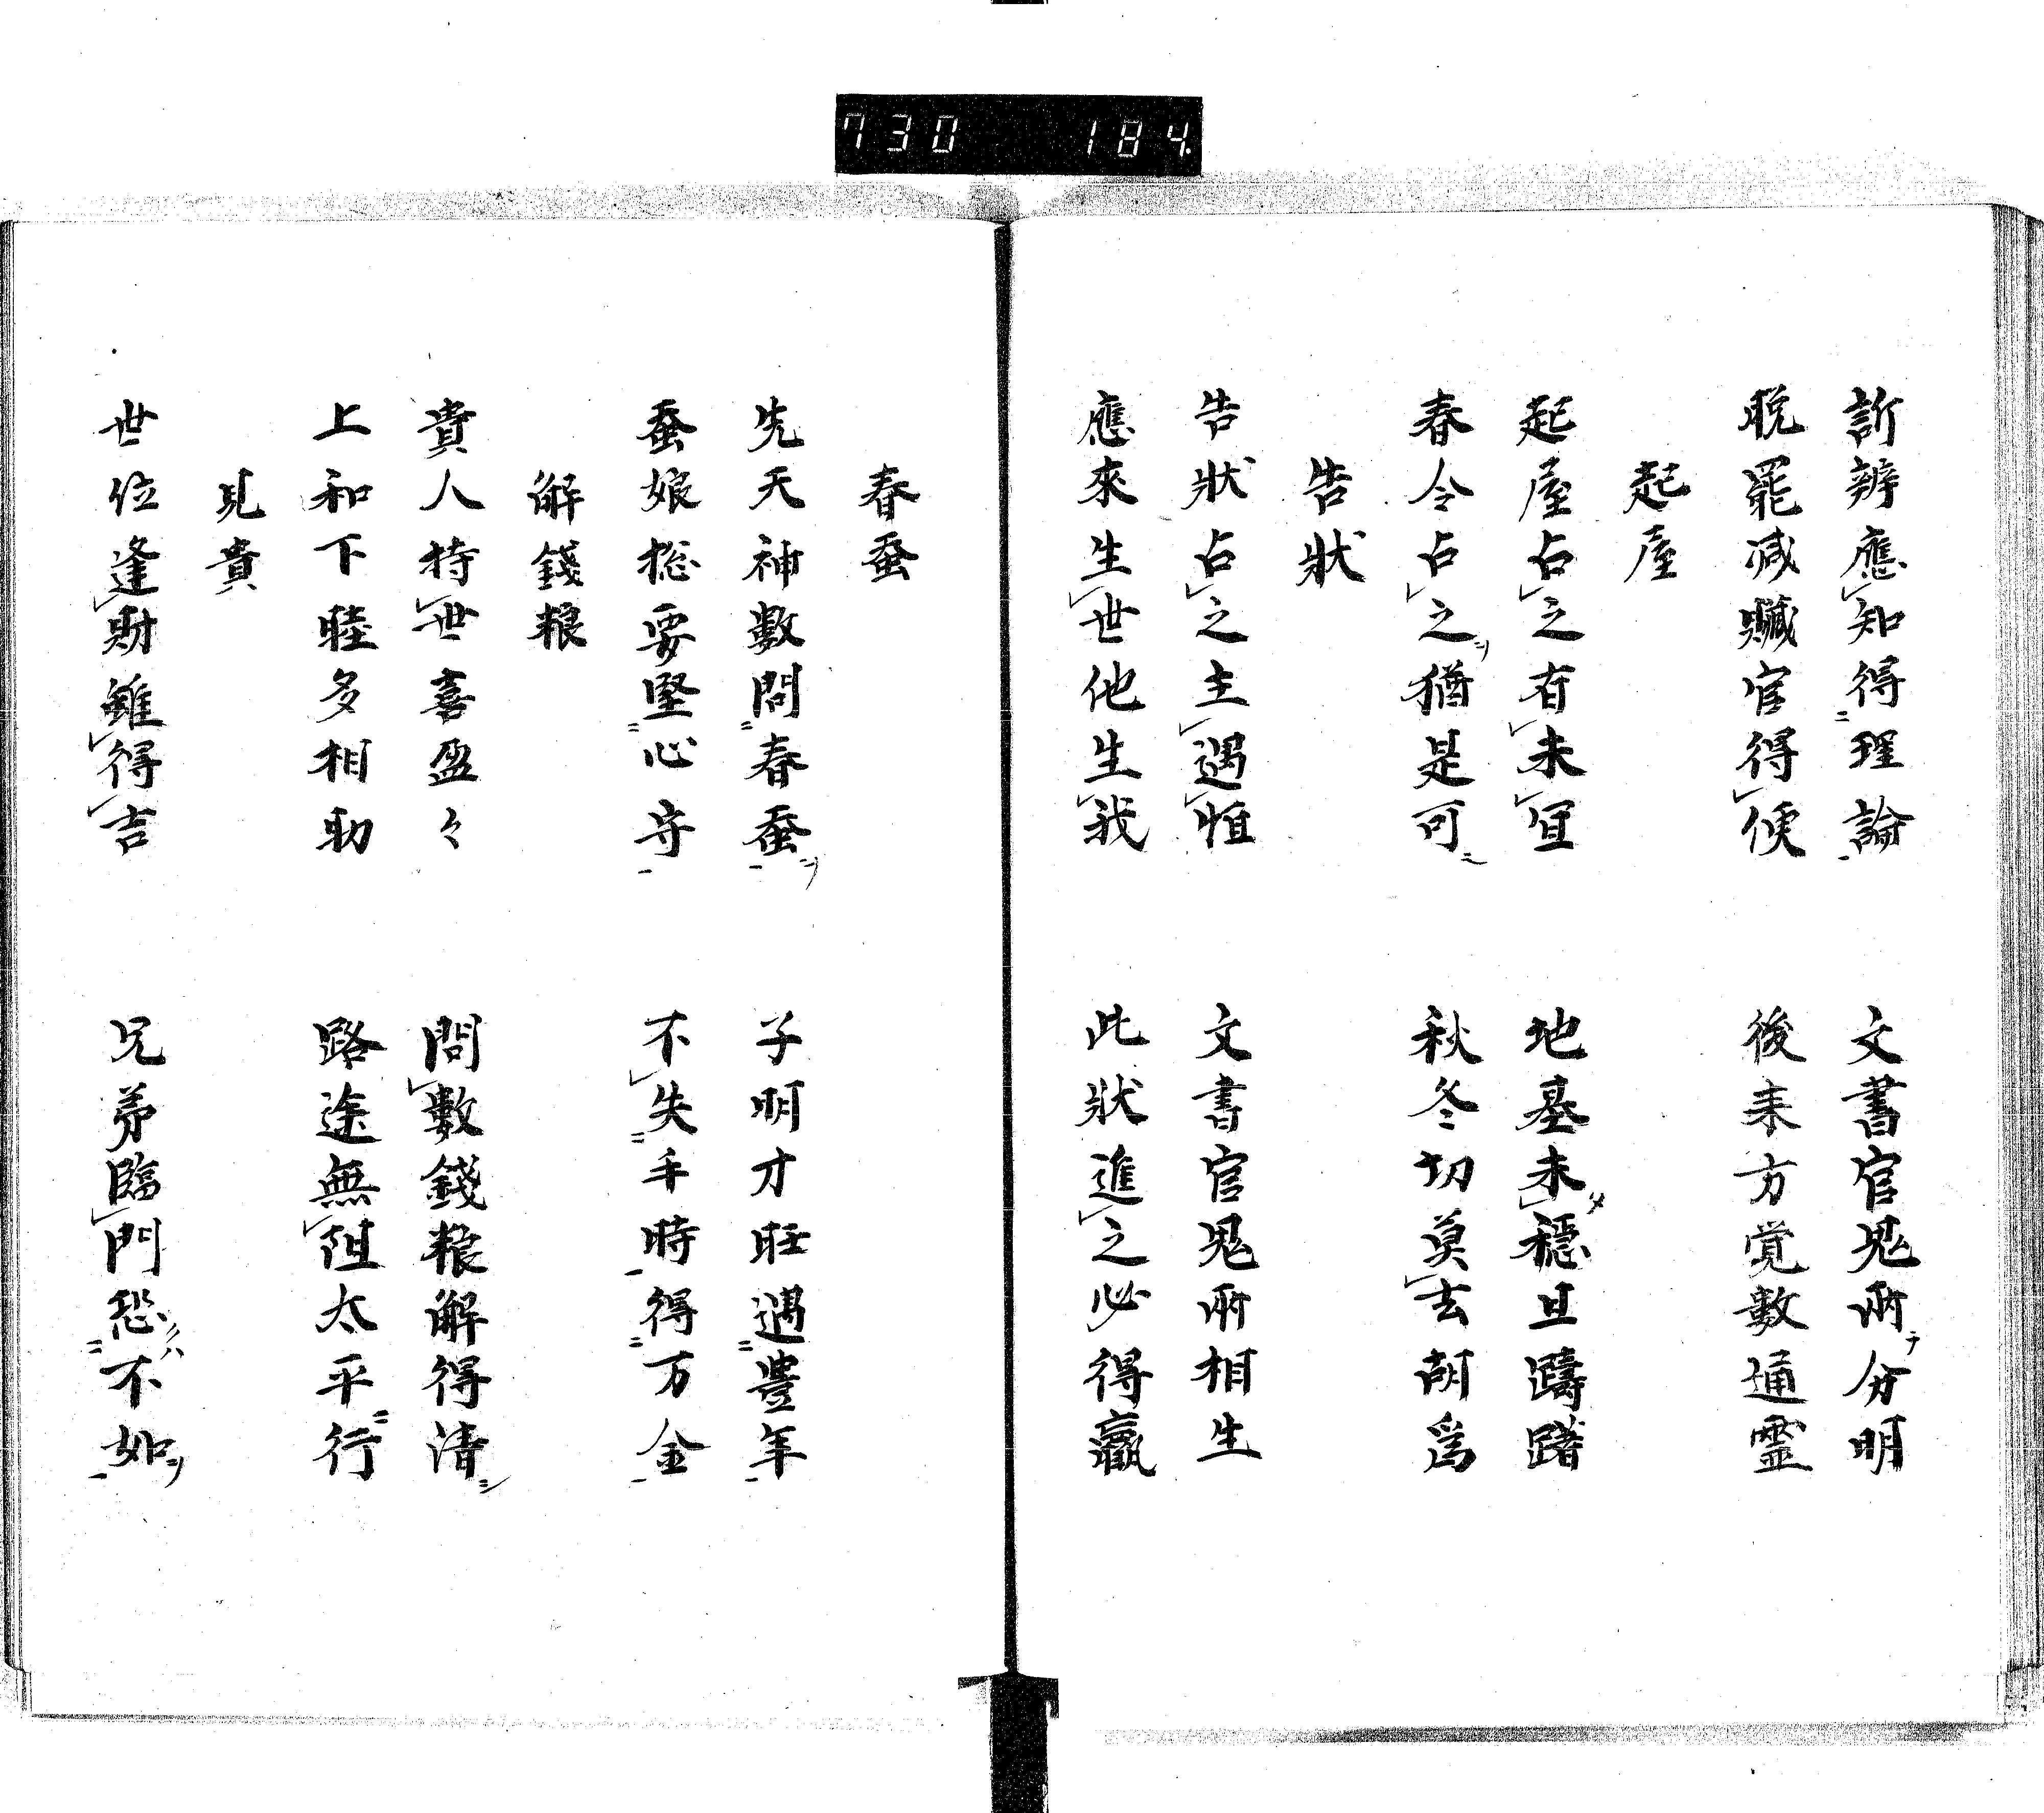 730 184
訴辨應知得理論 文書官鬼兩ナ分明
脱罷減贓官得便 後来方覚數通霊
起屋
起屋占之有未宜 地基未メ穏且躊躇
春令占之ヲ猶是可ニ 秋冬切莫去胡爲
告狀
告狀占之主遇恒 文書官鬼兩相生
應來生世他生我 此狀進之必得贏
春蚕
先天神數問二春蚕ヲ一 子明才旺遇二豊年一
蚕娘捴要堅二心守一 不失二手時一得二万金一
解錢粮
貴人持世喜盈々 問數錢粮解得清ニ
上和下睦多相助 路途無阻太平ニ行
見貴
世位逢財雖得吉 兄弟臨門恐二クハ不如ヲ一